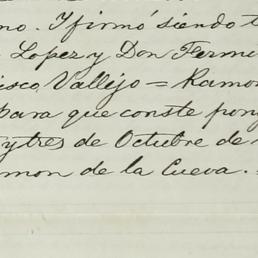 no. Y firmó siendo t
Lopez y Don Ferm
isco Vallejo = Ramon
para que conste pon
y tres de Octubre de
mon de la Cueva. =